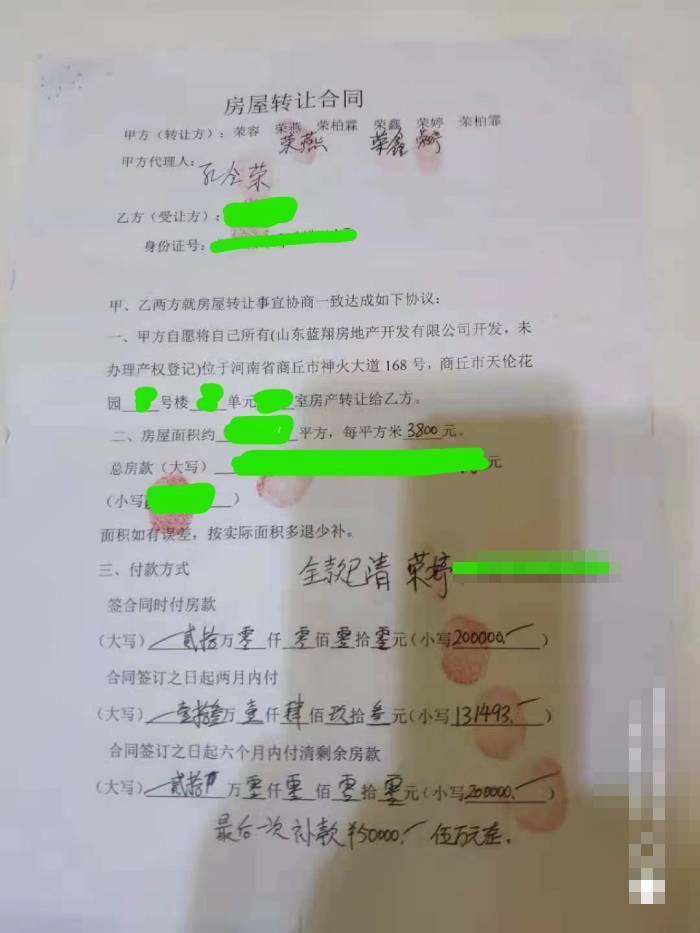 房屋转让合同
甲方（转让方）：荣容 荣燕 荣柏霖 荣鑫 荣婷 荣柏霏
荣燕 荣鑫 荣婷
甲方代理人：
孔令荣
乙方（受让方）：
身份证号：
甲、乙两方就房屋转让事宜协商一致达成如下协议：
一、甲方自愿将自己所有(山东蓝翔房地产开发有限公司开发，未
办理产权登记)位于河南省商丘市神火大道168号，商丘市天伦花
园 号楼 单元 室房产转让给乙方。
二、房屋面积约 平方，每平方米3800元。
总房款（大写） 元
（小写 ）
面积如有误差，按实际面积多退少补。
三、付款方式
全款已清 荣婷
签合同时付房款
（大写）贰拾万零仟零佰零拾零元（小写200000.）
合同签订之日起两月内付
（大写）万壹仟肆佰玖拾叁元（小写131493.）
合同签订之日起六个月内付清剩余房款
（大写）贰拾万零仟零佰零拾零元（小写200000.）
最后一次补款¥50000. 伍万元整.